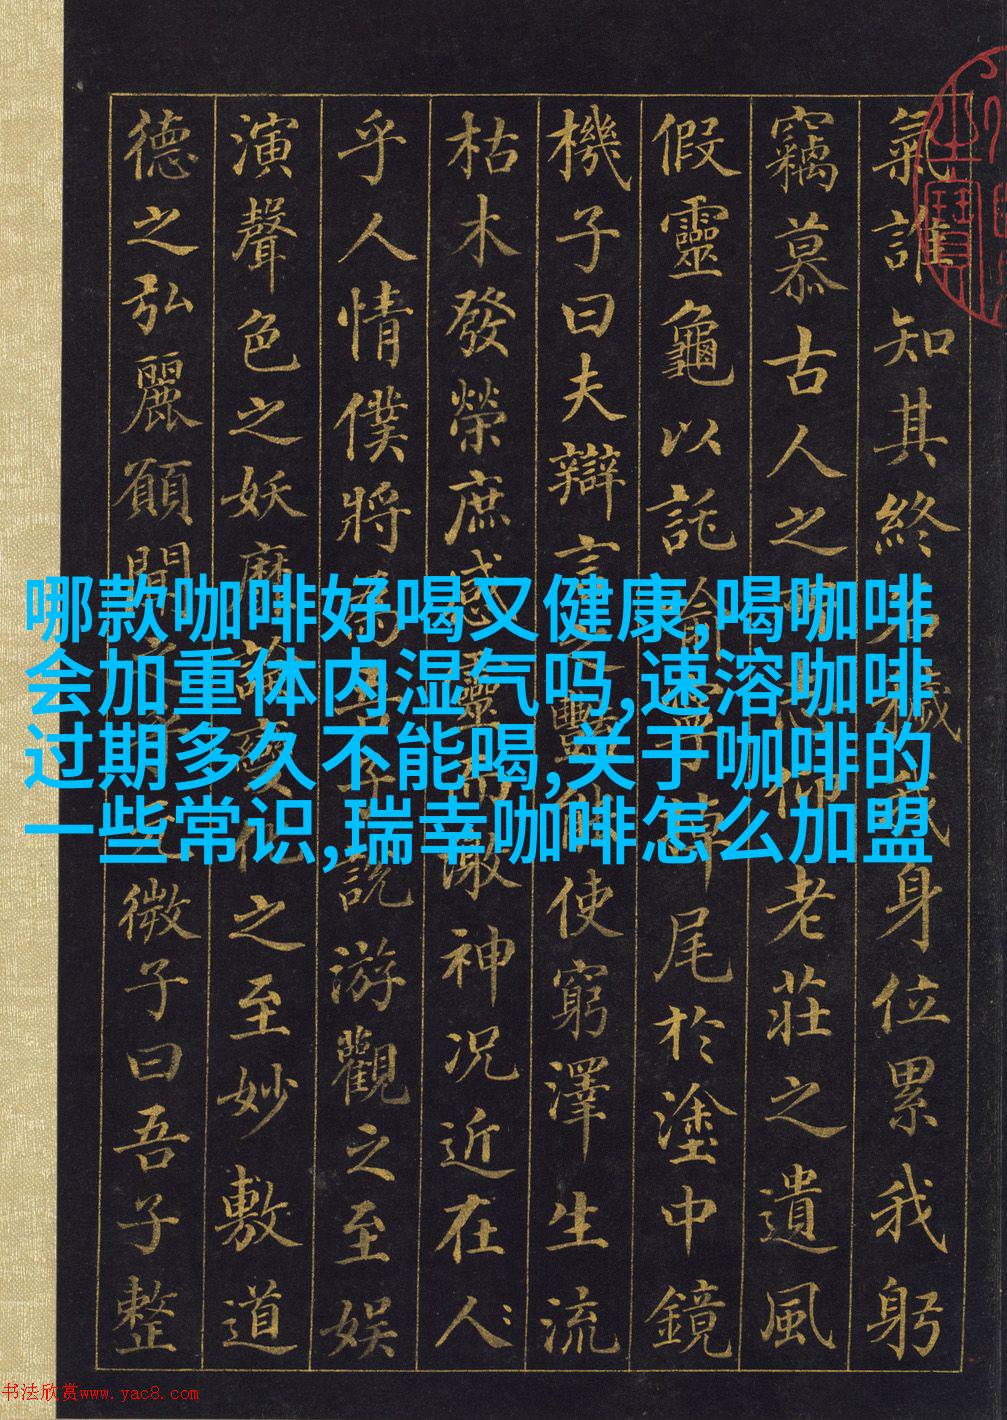 氣誰知其終名穢我身位累我躬
竊慕古人之所志仰老莊之遺風
假靈龜以託喻寧掉尾於塗中鏡
機子曰夫辯言之艷能使窮澤生流
枯木發榮庶感靈而激神況近在人
乎人情僕將為吾子說游觀之至娛
演聲色之妖靡論變化之至妙敷道
德之弘麗願聞之乎玄微子曰吾子整
哪款咖啡好喝又健康,喝咖啡
会加重体内湿气吗,速溶咖啡
过期多久不能喝,关于咖啡的
一些常识,瑞幸咖啡怎么加盟
书法欣赏www.yac8.com